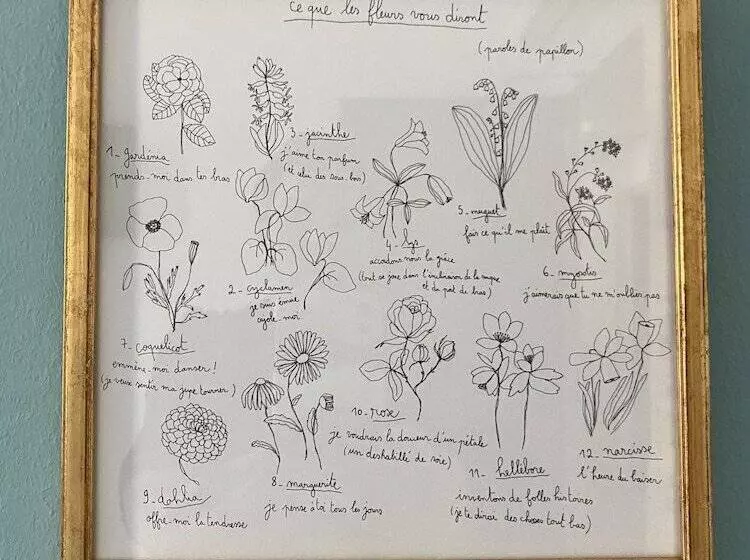 ce que les fleurs vous diront
(paroles de papillon)
1_ gardénia
prends-moi dans tes bras
2_ cyclamen
je suis émue
cajole-moi
3_ jacinthe
j'aime ton parfum
(et celui des sous-bois)
4_ lys
accordons nous la grâce
(tout se joue dans l'inclinaison de la nuque
et du port de bras)
5_ muguet
fais ce qu'il me plaît
6_ myosotis
j'aimerais que tu ne m'oublies pas
7_ coquelicot
emmène-moi danser!
(je veux sentir ma jupe tourner)
8_ marguerite
je pense à toi tous les jours
9_ dahlia
offre-moi la tendresse
10_ rose
je voudrais la douceur d'un pétale
(un deshabillé de soie)
11_ hellébore
inventons de folles histoires
(je te dirai des choses tout bas)
12_ narcisse
l'heure du baiser